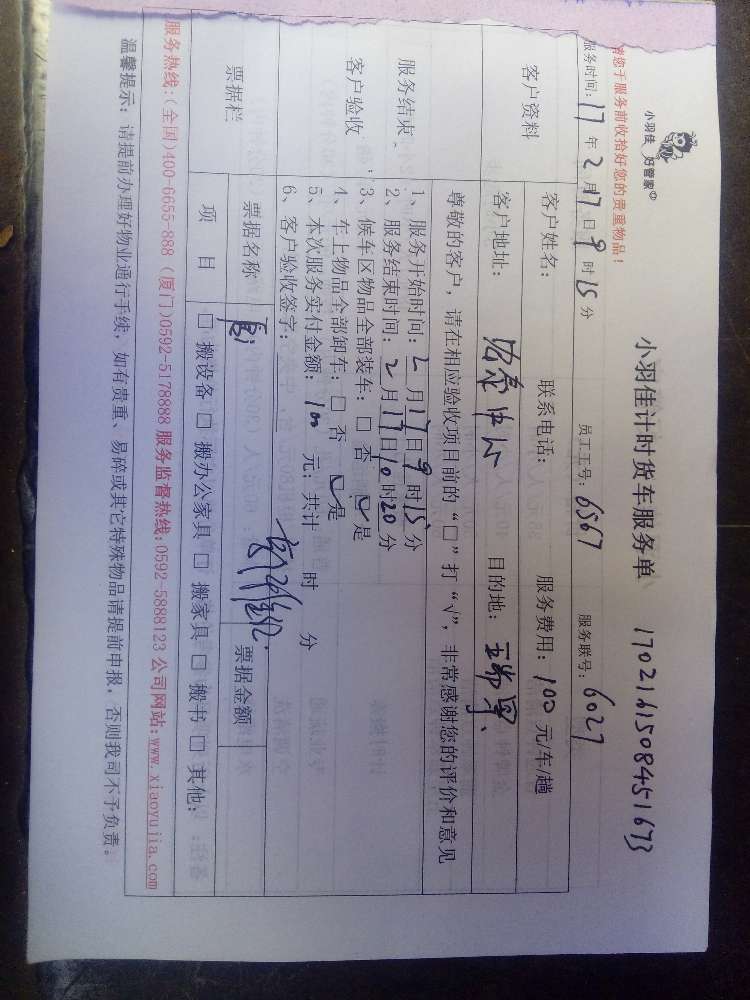 小羽佳 好管家
小羽佳计时货车服务单 1702161508451673
请您于服务前收拾好您的贵重物品！
服务时间：17年2月17日9时15分 员工工号：6567 服务联号：6027
客户资料
客户姓名： 联系电话： 服务费用：100元/车/趟
客户地址： 目的地：
尊敬的客户，请在相应验收项目前的“□”打“√”，非常感谢您的评价和意见
服务结束，
客户验收
1、服务开始时间：2月17日9时15分
2、服务结束时间：2月17日10时20分
3、候车区物品全部装车：□否 √是
4、车上物品全部卸车：□否 √是
5、本次服务实付金额：100元；共计 时 分
6、客户验收签字：
票据栏
票据名称 票据金额
项 目 □搬设备 □搬办公家具 □搬家具 □搬书 □其他：
服务热线：（全国）400-6655-888（厦门）0592-5178888 服务监督热线：0592-5888123 公司网站：www.xiaoyujia.com
温馨提示：请提前办理好物业通行手续，如有贵重、易碎或其它特殊物品请提前申报，否则我司不予负责。